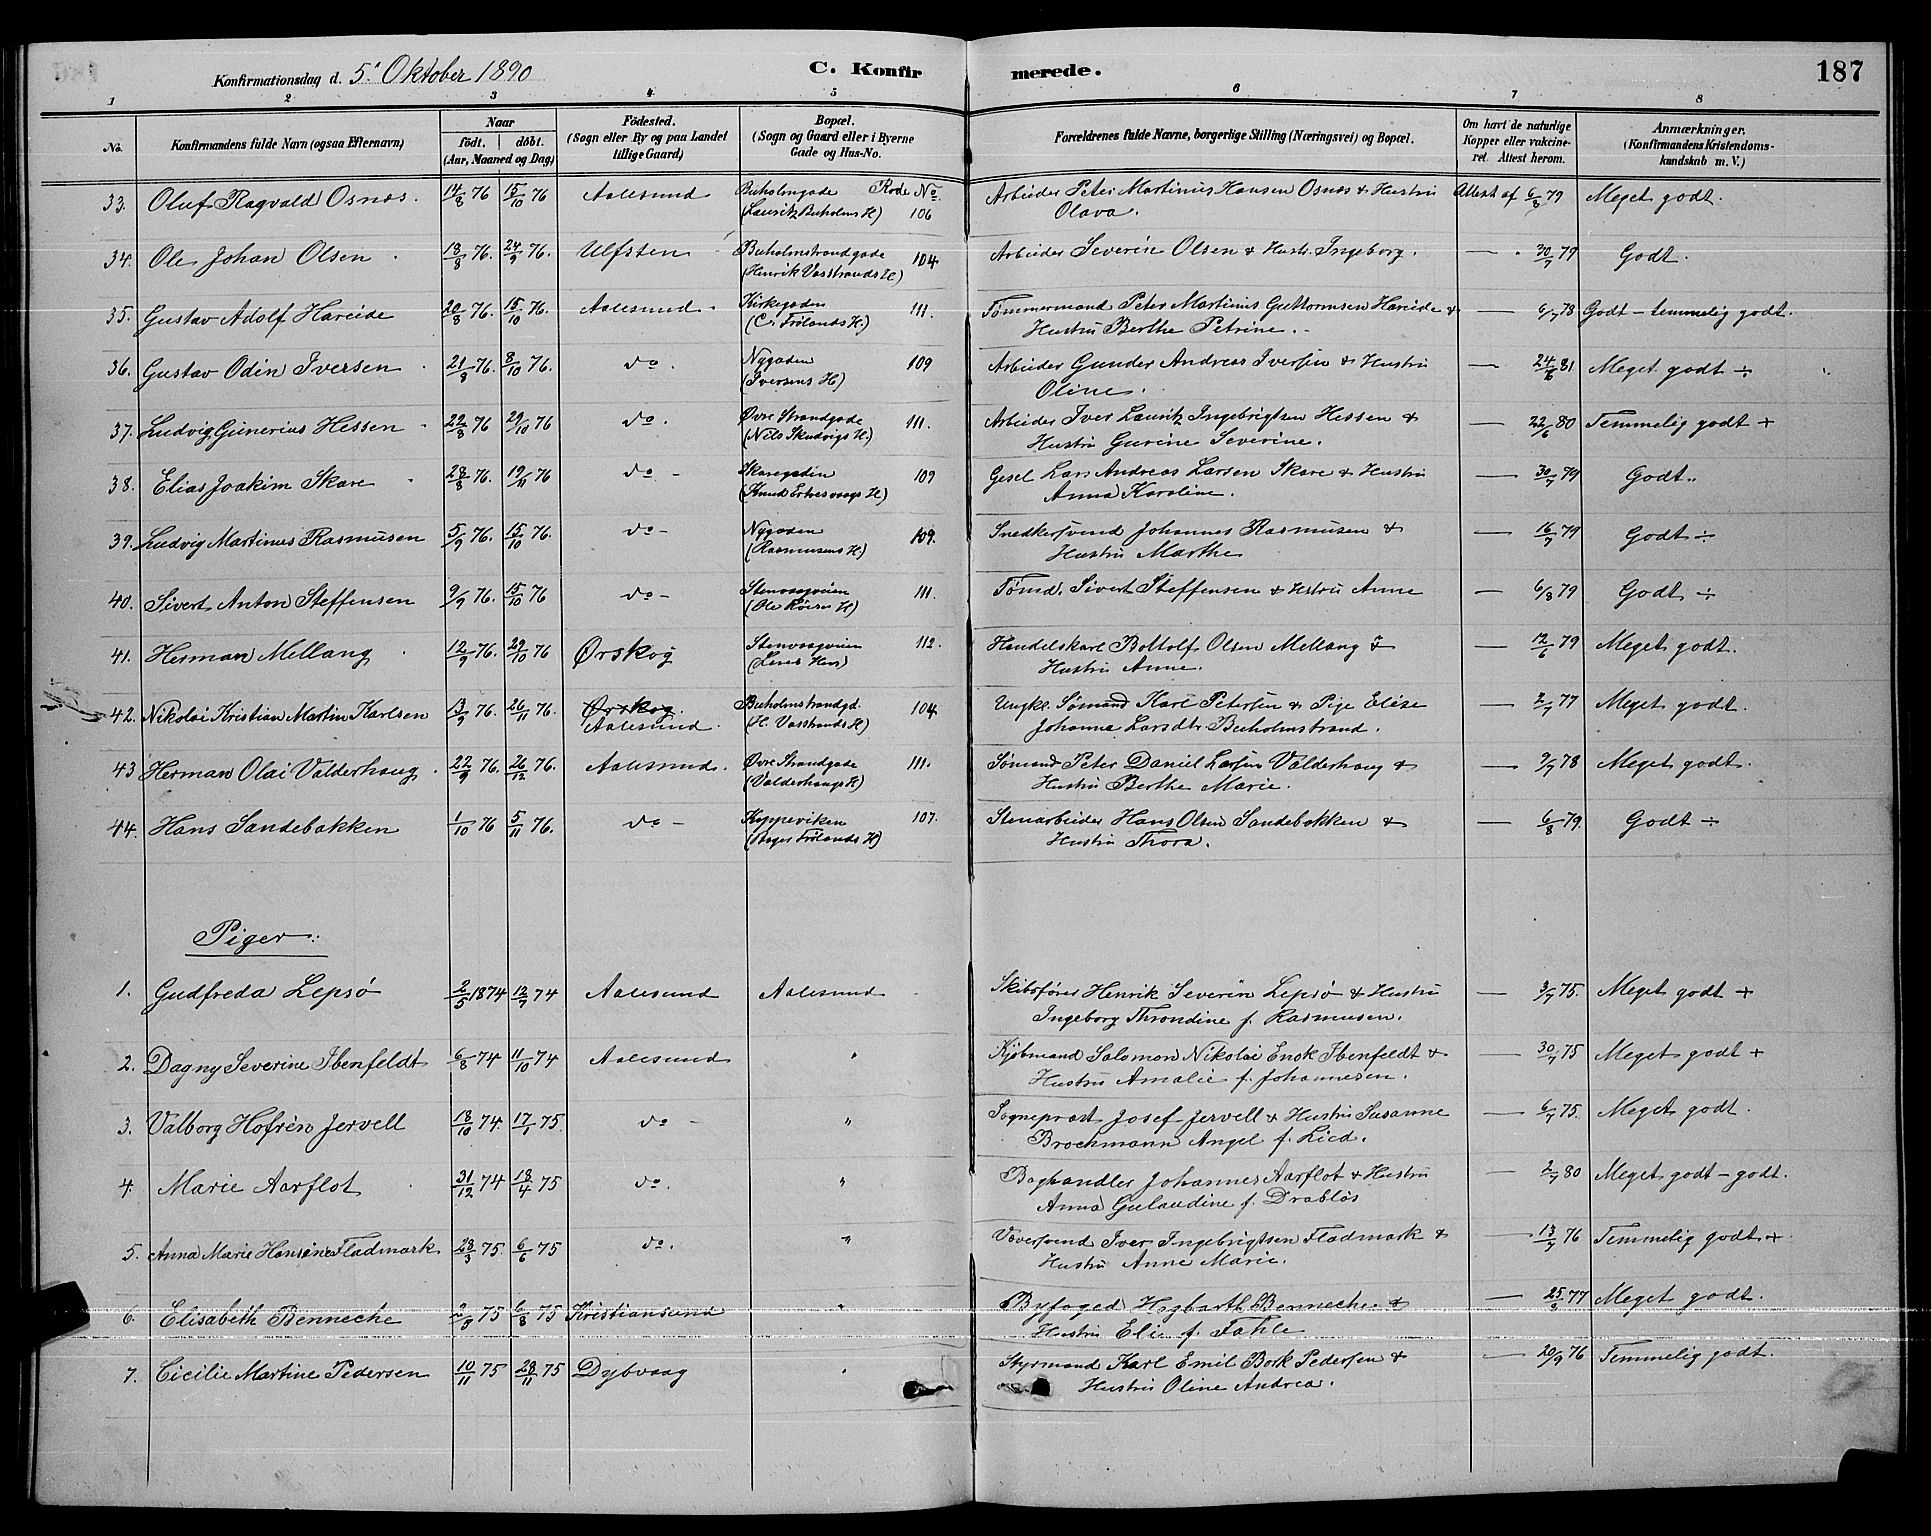 Konfirmationsdag d. 5' Oktober 1890 C. Konfirmerede. 187
1 2 3 4 5 6 7 8
No. Konfirmandens fulde Navn (ogsaa Efternavn) Naar födt. döbt. (Aar, Maaned og Dag) Födested. (Sogn eller By og paa Landet tillige Gaard) Bopæl. (Sogn og Gaard eller i Byerne Gade og Hus-No. Forældrenes fulde Navne, borgerlige Stilling (Næringsvei) og Bopæl. Om havt de naturlige Kopper eller vakcineret. Attest herom. Anmærkninger. (Konfirmandens Kristendomskundskab m. V.)
33. Oluf Ragvald Osnæs. 14/8 76 15/10 76 Aalesund Buholmgade Rode No. Arbeider Peter Martinus Hansen Osnæs & Hustru Attest af 6/8 79 Meget godt.
(Lauritz Buholms H) 106 Olava.
34. Ole Johan Olsen 18/8 76. 24/9 76. Ulfsten Buholmstrandgade 104 Arbeider Severin Olsen & Hustr. Ingeborg. — " 30/7 79 Godt.
(Henrik Vasstrands H)
35. Gustav Adolf Hareide 20/8 76. 15/10 76. Aalesund Kirkegaden 111. Tømmermand Peter Martinus Guttormsen Hareide & — 6/7 78 Godt - temmelig godt.
(C. Frölands H.) Hustru Berthe Petrine.
36. Gustav Odin Iversen 21/8 76. 8/10 76. do. Nygaden 109 Arbeider Gunder Andreas Iversen & Hustru — 24/6 81 Meget godt ÷
(Iversens H) Oline.
37. Ludvig Gunerius Hessen 22/8 76 29/10 76 do. Övre Strandgade 111. Arbeider Iver Lauritz Ingebrigtsen Hessen & — 22/6 80 Temmelig godt +
(Nils Skudvigs H.) Hustru Gurine Severine.
38. Elias Joakim Skare 28/8 76. 19/11 76 do - Skaregaden 109 Gesel Lars Andreas Larsen Skare & Hustru — 30/7 79 Godt..
(Knud Ertresvaags H) Anna Karoline.
39. Ludvig Martinus Rasmusen 5/9 76. 15/10 76. do - Nygaden 109. Snedkersvend Johannes Rasmusen & — 16/7 79 Godt ÷
(Rasmusens H) Hustru Marthe
40. Sivert Anton Steffensen 9/9 76. 15/10 76 do - Stenvaagveien 111. Tømd. Sivert Steffensen & Hstru Anne — 6/8 79 Godt ÷
41. Herman Mellang 12/9 76. 29/10 76 Ørskog Stenvaagveien 112. Handelskarl Bottolf Olsen Mellang & — 12/6 79 Meget godt.
Hustru Anne.
42. Nikolai Kristian Martin Karlsen 13/9 76. 26/11 76. Ørskog. Buholmstrandgd. 104. Ungk. Sømand Karl Petersen & Pige Elise — 2/7 77 Meget godt.
Aalesund. (H. Vasstrands H) Johanna Larsdtr. Buholmstrand.
43 Herman Olai Valderhaug. 22/9 76. 26/12 76. Aalesund. Övre Strandgade 111. Sømand Peter Daniel Larsen Valderhaug & — 9/7 78 Meget godt.
(Valderhaugs H) Hustru Berthe Marie.
44. Hans Sandebakken 1/10 76 5/11 76. do - Kipperviken 107. Stenarbeider Hans Olsen Sandebakken & — 6/8 79. Godt ÷
Hustru Thora.
Piger:
1. Gudfreda Lepsö 2/5 1874 12/7 74 Aalesund Aalesund Skibsfører Henrik Severin Lepsø & Hustru — 3/7 75. Meget godt +
Ingeborg Throndine f. Rasmusen.
2. Dagny Severine Ibenfeldt 6/8 74 11/10 74 Aalesund " Kjøbmand Salomon Nikolai Enok Ibenfeldt & — 30/7 75 Meget godt +
Hustru Amalie f. Johannesen.
3. Valborg Hofrén Jervell 18/10 74. 17/1 75. do - " Sogneprest Josef Jervell & Hustru Susanne — 6/7 75. Meget godt.
Brochmann Angel f. Lied.
4. Marie Aarflot 31/12 74 18/4 75 do. " Boghandler Johannes Aarflot & Hustru — 2/7 80 Meget godt - godt.
Anna Gulaudine f. Drabløs
5. Anna Marie Hansine Fladmark 28/3 75 6/6 75 do. " Væversvend Iver Ingebrigtsen Fladmark & — 13/7 76 Temmelig godt +.
Hustru Anne Marie.
6. Elisabeth Bennecke 2/8 75 6/8 75 Kristiansund " Byfoged Hagbarth Bennecke & — 25/8 77 Meget godt.
Hustru Elie f. Fahle
7. Cicilie Martine Pedersen 10/11 75 28/11 75 Dybvaag " Styrmand Karl Emil Bork Pedersen & — 20/9 76 Temmelig godt.
Hustru Oline Andrea.